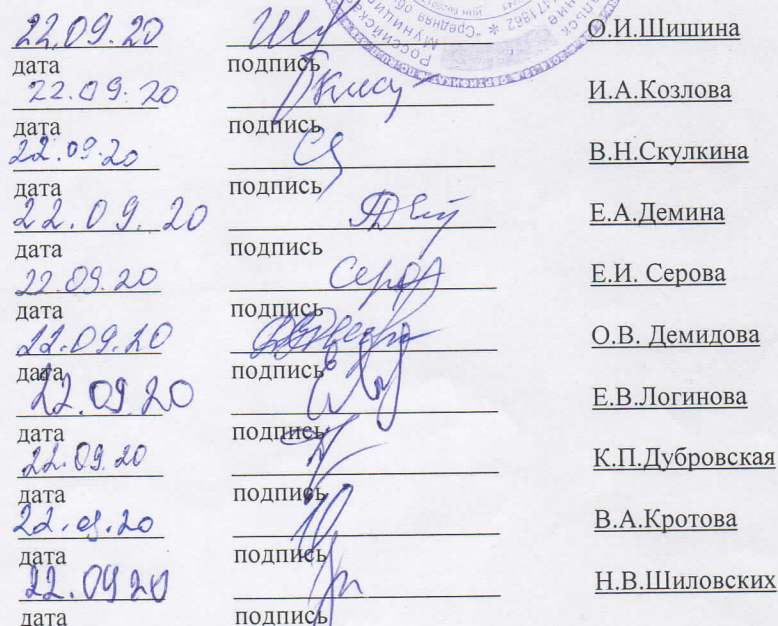 Российская
Муниципал
"Средняя об
22.09.20 О.И.Шишина
дата подпись
22.09.20 И.А.Козлова
дата подпись
22.09.20 В.Н.Скулкина
дата подпись
22.09.20 Е.А.Демина
дата подпись
22.09.20 Серова Е.И. Серова
дата подпись
22.09.20 О.В. Демидова
дата подпись
22.09.20 Е.В.Логинова
дата подпись
22.09.20 К.П.Дубровская
дата подпись
22.09.20 В.А.Кротова
дата подпись
22.09 20 Н.В.Шиловских
дата подпись